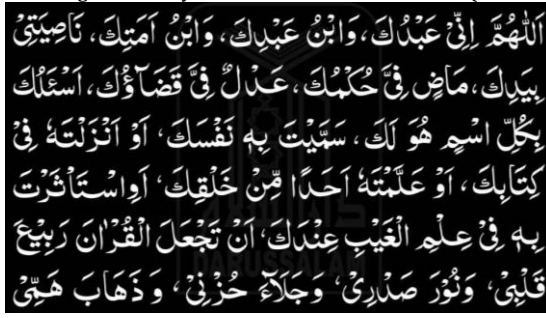 اَللّٰهُمَّ اِنِّیْ عَبْدُكَ، وَابْنُ عَبْدِكَ، وَابْنُ اَمَتِكَ، نَاصِيَتِیْ
بِيَدِكَ، مَاضٍ فِیَّ حُكْمُكَ، عَدْلٌ فِیَّ قَضَآؤُكَ، اَسْئَلُكَ
بِكُلِّ اسْمٍ هُوَ لَكَ، سَمَّيْتَ بِهٖ نَفْسَكَ، اَوْ اَنْزَلْتَهٗ فِیْ
كِتَابِكَ، اَوْ عَلَّمْتَهٗ اَحَدًا مِّنْ خَلْقِكَ، اَوِاسْتَاْثَرْتَ
بِهٖ فِیْ عِلْمِ الْغَيْبِ عِنْدَكَ، اَنْ تَجْعَلَ الْقُرْاٰنَ رَبِيْعَ
قَلْبِیْ، وَنُوْرَ صَدْرِیْ، وَجَلَآءَ حُزْنِیْ، وَذَهَابَ هَمِّیْ
DARUSSALAM